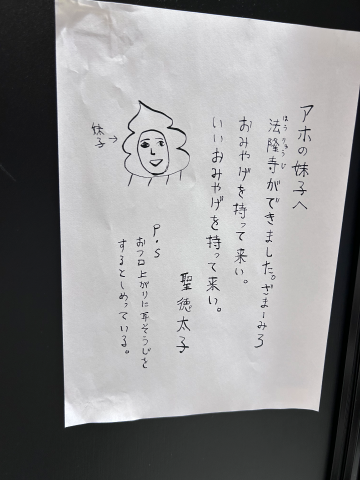 アホの妹子へ
法隆寺ができました。ざまーみろ
ほうりゅうじ
おみやげを持って来い。
いいおみやげを持って来い。
聖徳太子
P.S
おフロ上がりに耳そうじを
するとしめっている。
妹子→